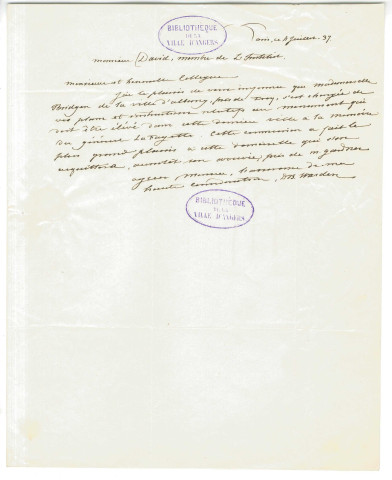 BIBLIOTHÈQUE
DE LA
VILLE D'ANGERS
Paris, ce 4 Juillet. 37
monsieur David, membre de L'Institut.
monsieur et honorable Collegue
J'ai le plaisir de vous informer que mademoiselle
Bridgen de la ville d'albany, près de troy, s'est chargée de
vos plans et instructions relatifs au monument qui
doit être élevé dans cette dernière ville à la memoire
du général La Fayette. Cette commission a fait le
plus grand plaisir à cette demoiselle qui s'en
acquittera, aussitôt son arrivée, près de m gardner
agréez monsieur, l'hommage de ma
haute consideration, DB Warden
BIBLIOTHÈQUE
DE LA
VILLE D'ANGERS